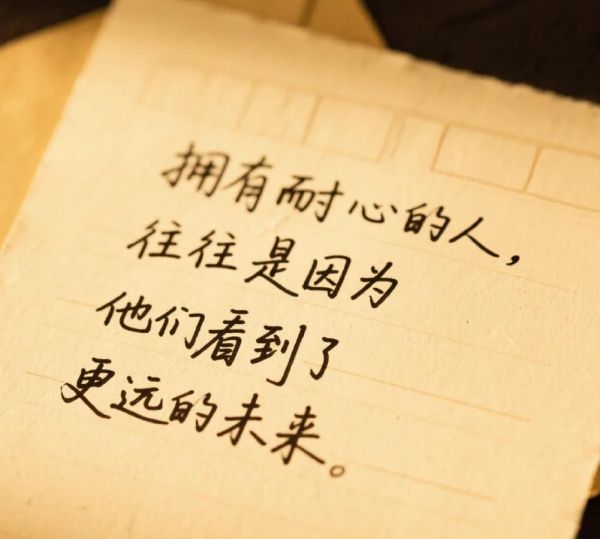 拥有而耐心的人，
往往是因为
他们看到了
更远的未来。